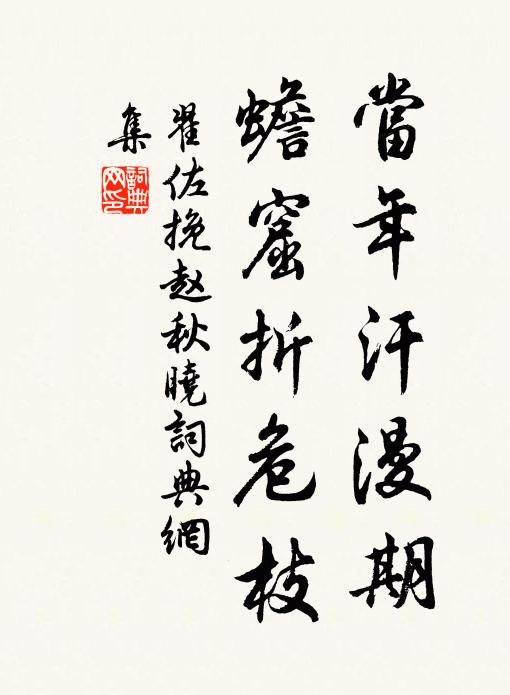 當年汗漫期
蟾窟折危枝
翟佐挽赵秋曉詞典網
集
詞典
网印